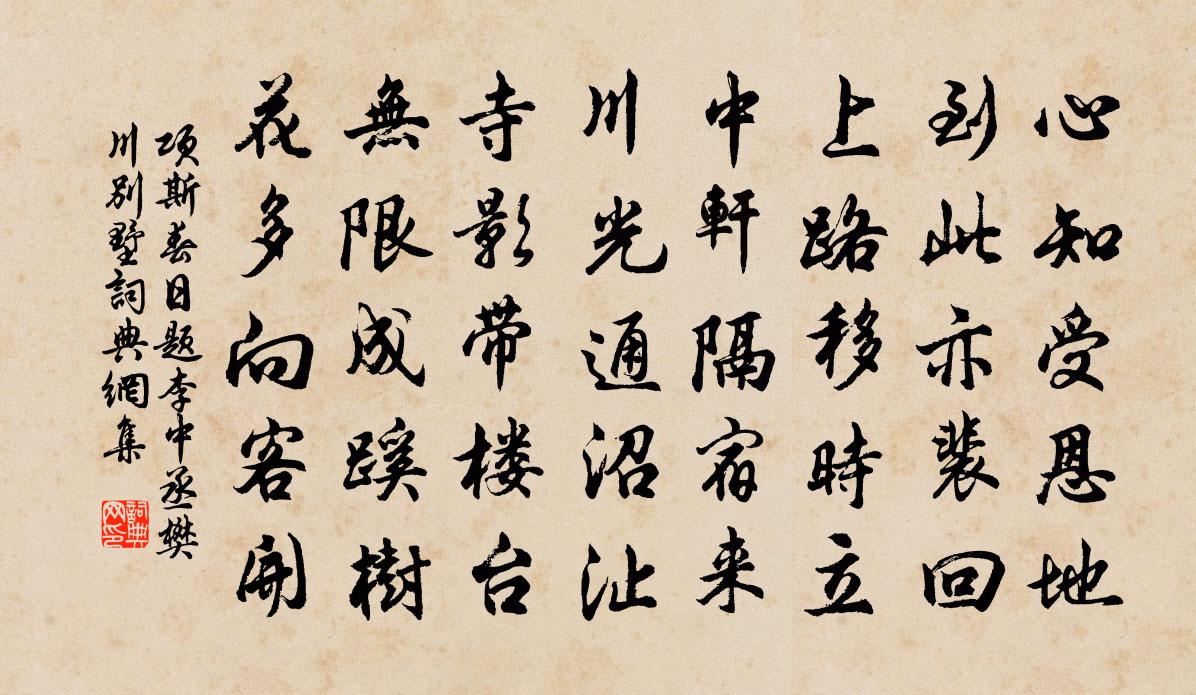 心知受恩地
到此亦裴回
上路移時立
中軒隔宿来
川光通沼沚
寺影帯楼台
無限成蹊樹
花多向客開
项斯春日题李中丞樊
川别墅詞典網集
詞典
网印